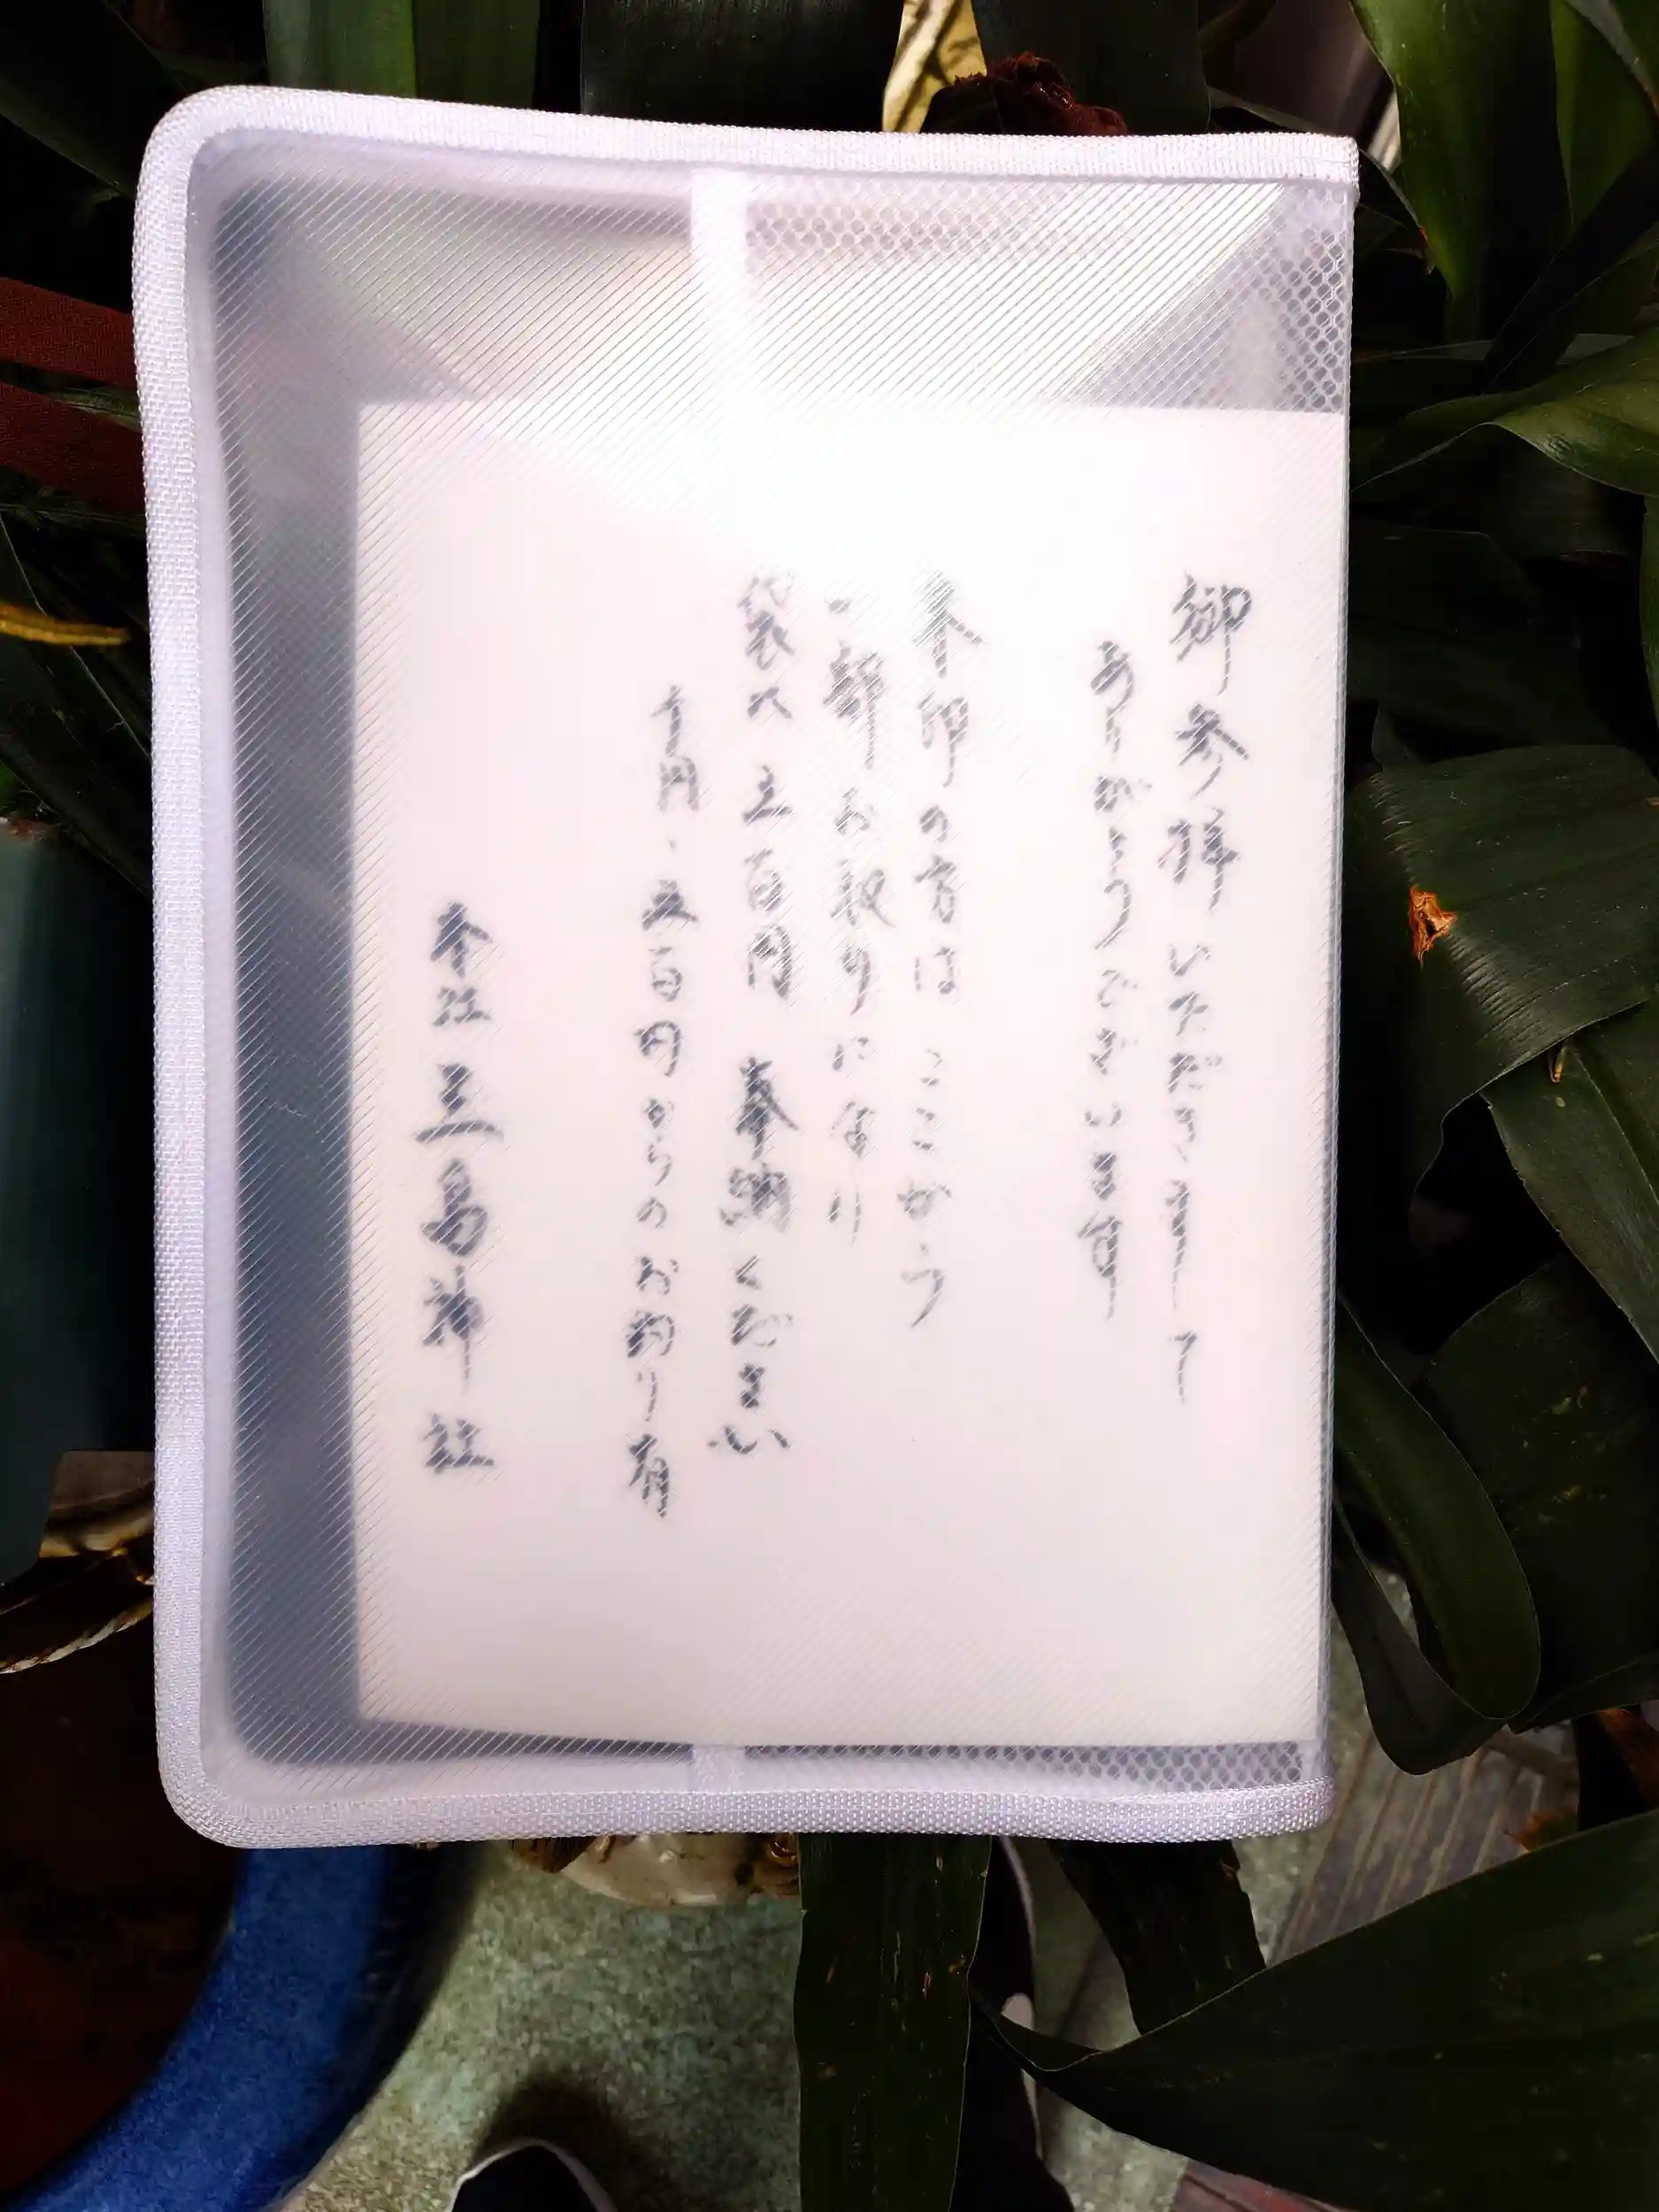 御参拝いただきまして
ありがとうございます
朱印の方はここから
一部お取りになり
袋へ五百円 奉納ください
千円・五百円からのお釣り有
本江三島神社